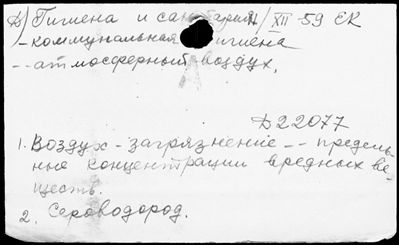 Д) Гигиена и санитария /XII-59 ЕК
-коммунальная гигиена
--атмосферный воздух.
Д22077
1. Воздух - загрязнение -- предель-
ные концентрации вредных ве-
ществ.
2. Сероводород.